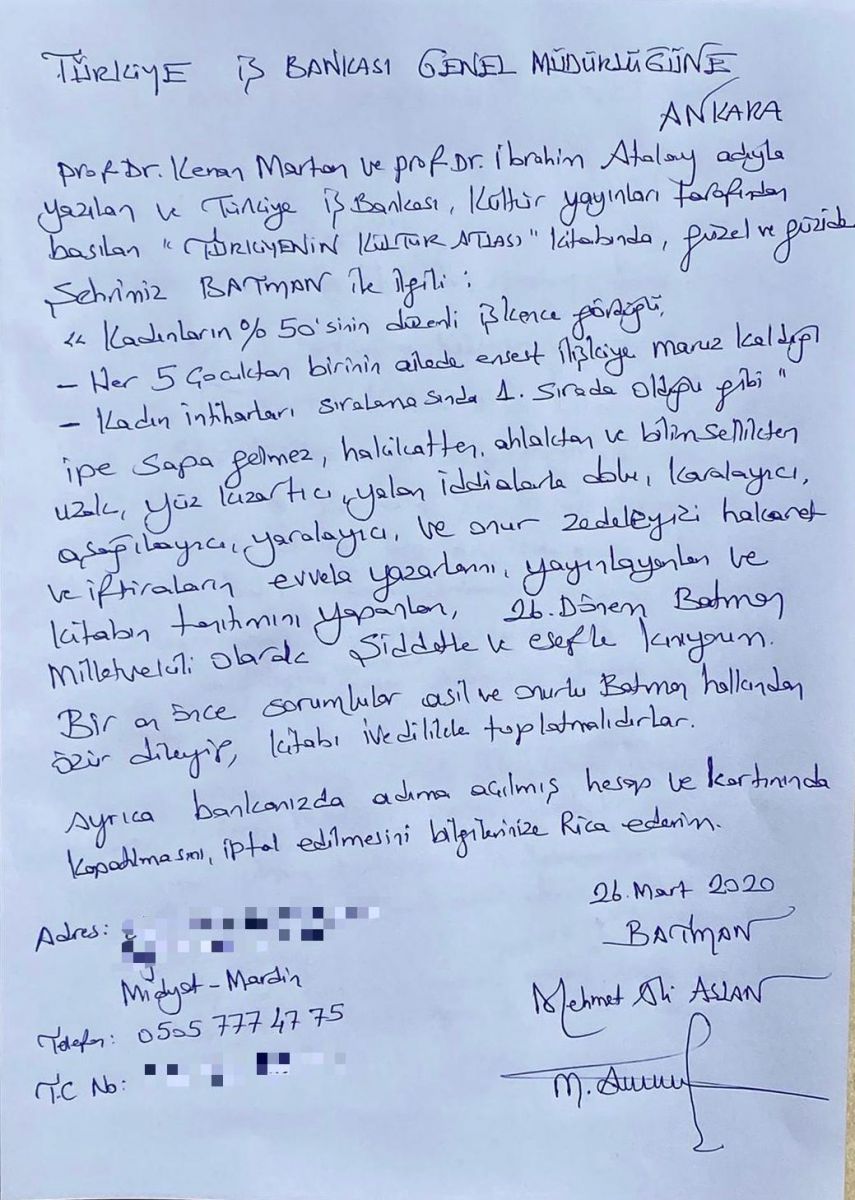 TÜRKİYE İŞ BANKASI GENEL MÜDÜRLÜĞÜNE
ANKARA
Prof Dr. Kenan Mortan ve prof Dr. İbrahim Atalay adıyla
yazılan ve Türkiye İş Bankası, Kültür yayınları tarafından
basılan "TÜRKİYENİN KÜLTÜR ATLASI" kitabında, güzel ve güzide
Şehrimiz BATMAN ile ilgili :
" Kadınların % 50'sinin düzenli işkence gördüğü,
- Her 5 Çocuktan birinin ailede ensest ilişkiye maruz kaldığı
- Kadın intiharları sıralamasında 1. sırada olduğu gibi "
ipe sapa gelmez, hakikatten, ahlaktan ve bilimsellikten
uzak, yüz kızartıcı, yalan iddialarla dolu, karalayıcı,
aşağılayıcı, yaralayıcı, ve onur zedeleyizi hakaret
ve iftiraların evvela yazarlarını, yayınlayanları ve
kitabın tanıtımını yapanları, 26. Dönem Batman
Milletvekili olarak Şiddetle ve esefle kınıyorum.
Bir an önce sorumlular asil ve onurlu Batman halkından
özür dileyip, kitabı ivedilikle toplatmalıdırlar.
Ayrıca bankanızda adıma açılmış hesap ve kartınında
kapatılmasını, iptal edilmesini bilgilerinize Rica ederim.
26. Mart 2020
BATMAN
Adres:
Midyat - Mardin
Mehmet Ali ASLAN
Telefon: 0505 777 47 75
T.C No: